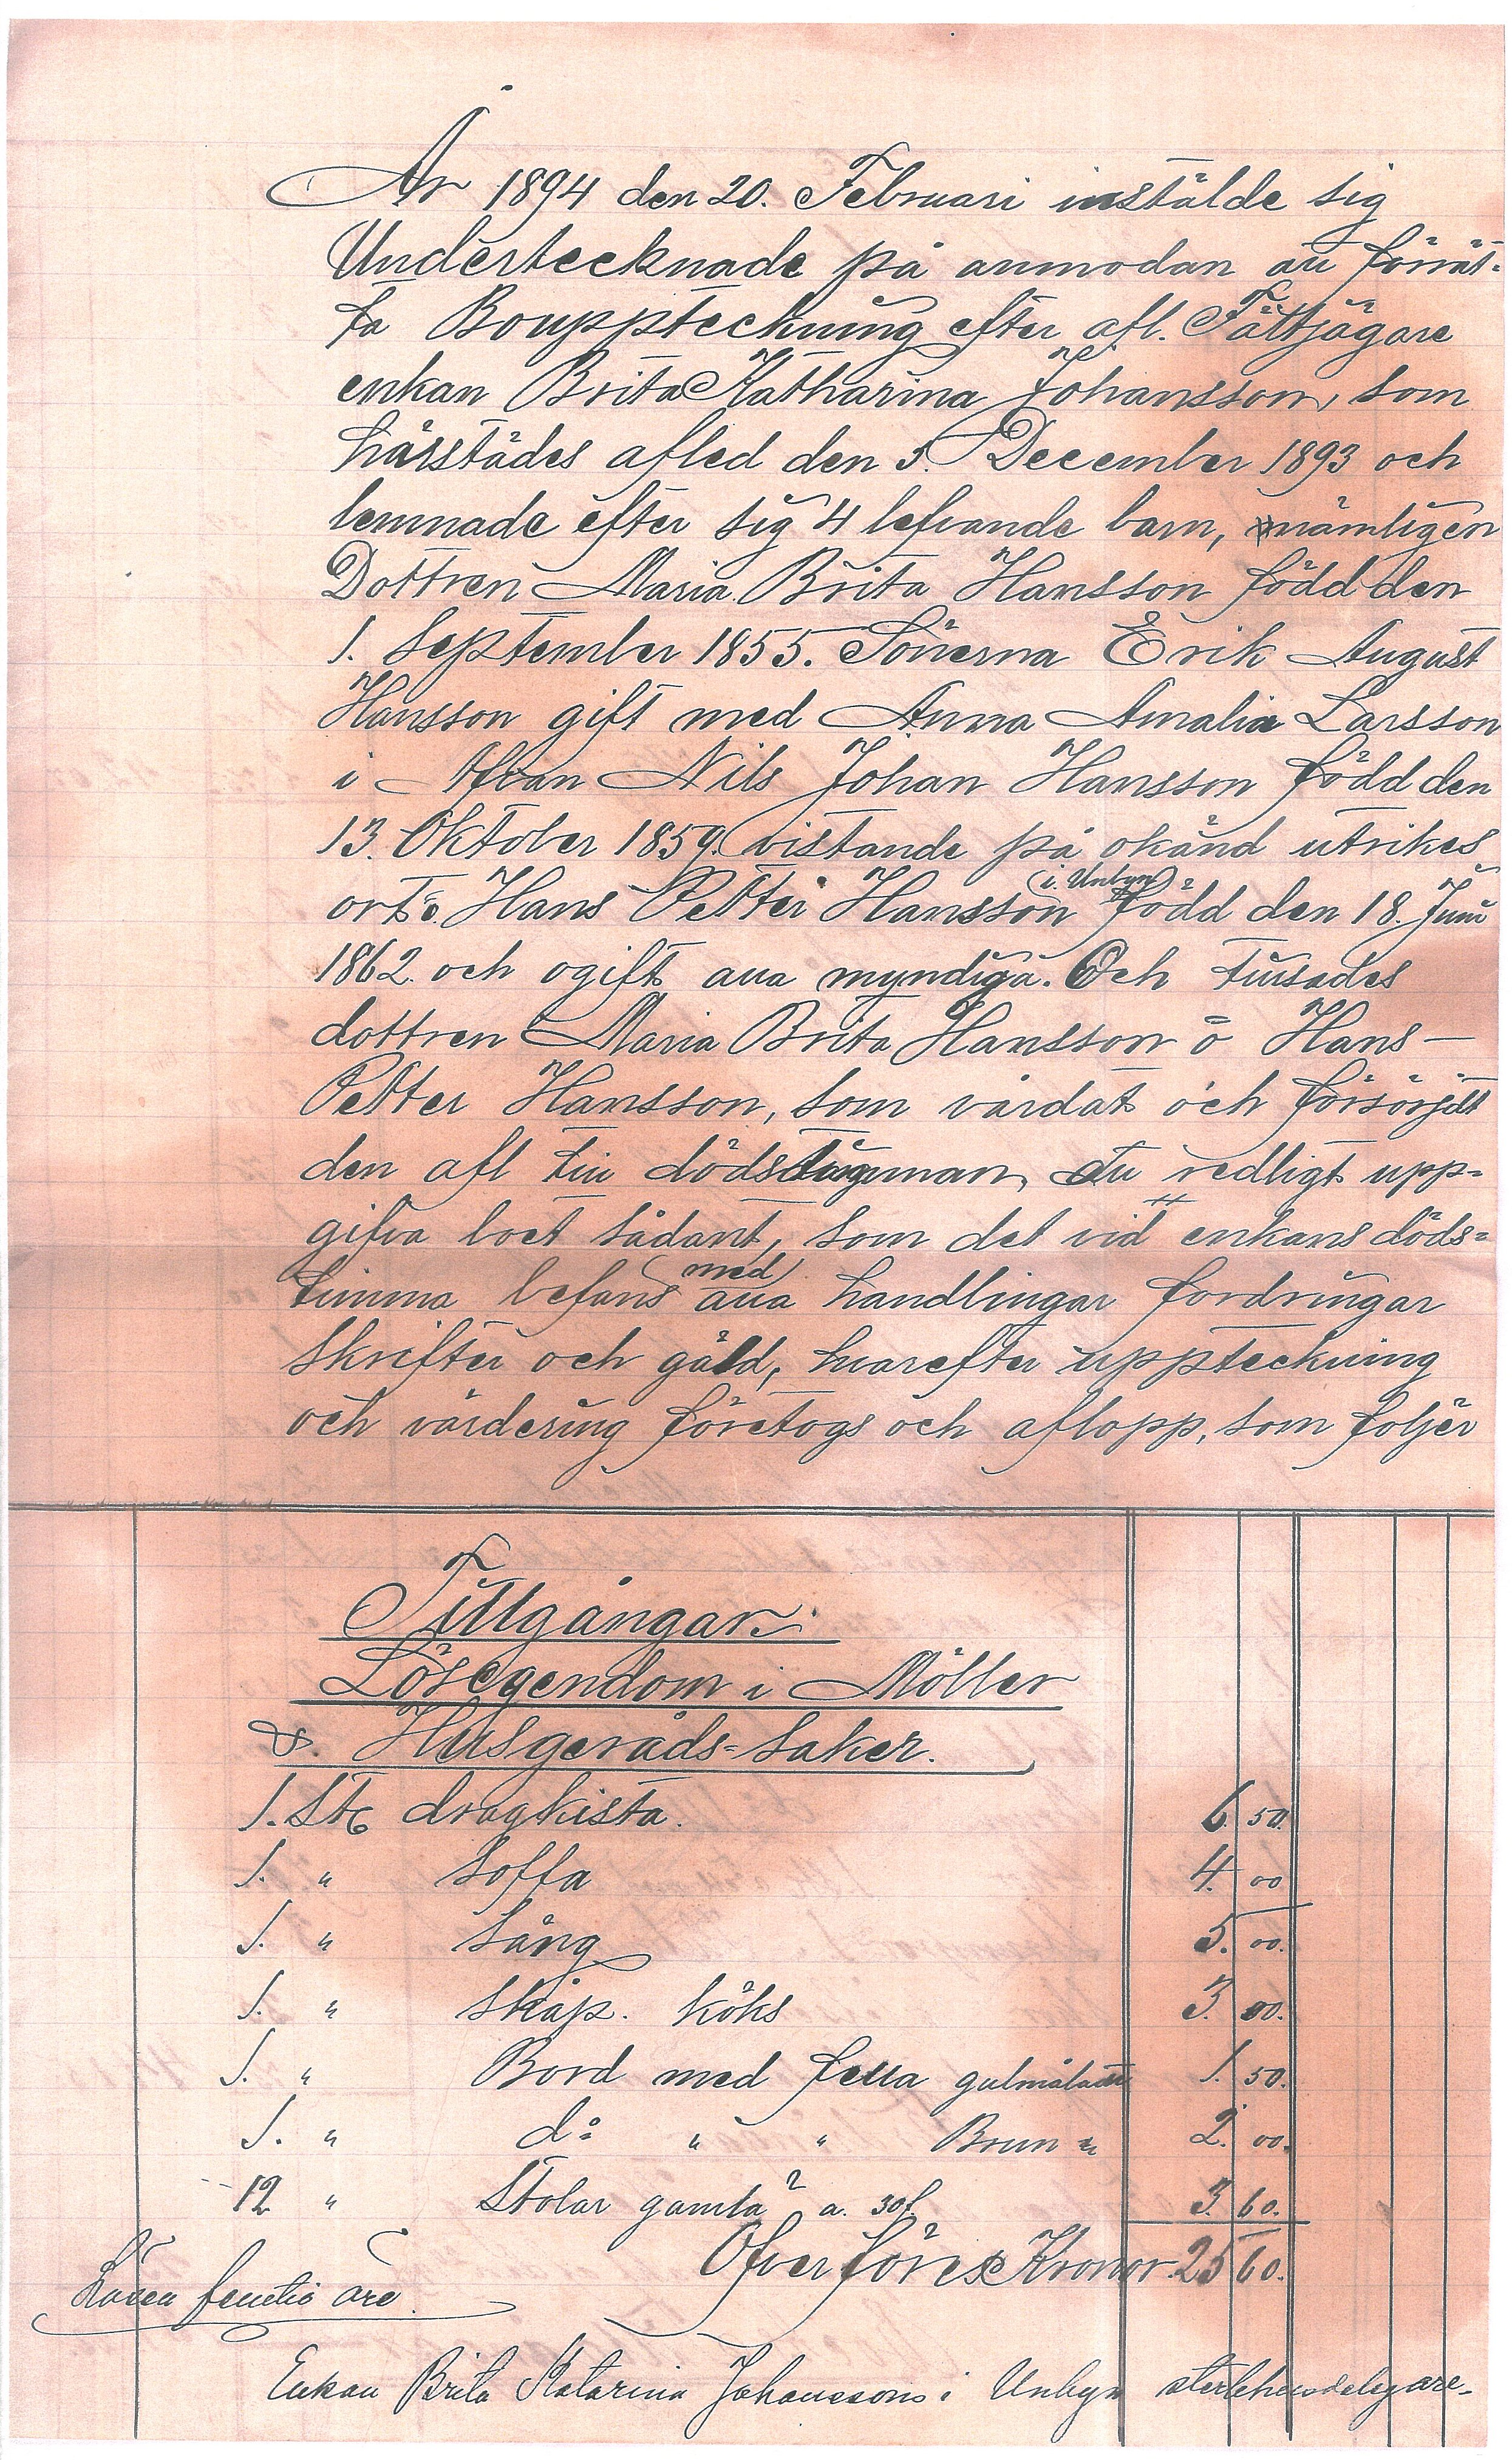 År 1894 den 20. Februari instälde sig
Undertecknade på anmodan att förrät-
ta Bouppteckning efter afl. Fältjägare
enkan Brita Katharina Johansson, som
härstädes afled den 5. December 1893 och
lemnade efter sig 4 lefvande barn, nämligen
Dottren Maria Brita Hansson född den
1. September 1855. Sönerna Erik August
Hansson gift med Anna Amalia Larsson
i Afvan Nils Johan Hansson född den
13. Oktober 1859. vistande på okänd utrikes
ort o. Hans Petter Hansson (i. Unbyn) född den 18. Juni
1862. och ogift alla myndiga. Och tillsades
dottren Maria Brita Hansson o Hans-
Petter Hansson, som vårdat och försörjdt
den afl till dödsdagen att redligt upp-
gifva boet sådant, som det vid enkans döds-
timma befans med alla handlingar fordringar
skrifter och gäld, hvarefter uppteckning
och värdering företogs och aflopp, som följer
Tillgångar:
Lösegendom i Möller
&. Husgeråds-saker.
1. St. dragkista. 6. 50.
1. " soffa 4. 00
1. " säng 5. 00.
1. " skåp. köks 3. 00.
1. " Bord med fella gulmåladt 1. 50.
1. " do " " Brun " 2. 00.
12 " Stolar gamla a. 30 3. 60.
Öfverföres Kronor. 25 60.
Enkan Brita Katarina Johanssons i Unbyn sterbhusdelegare.